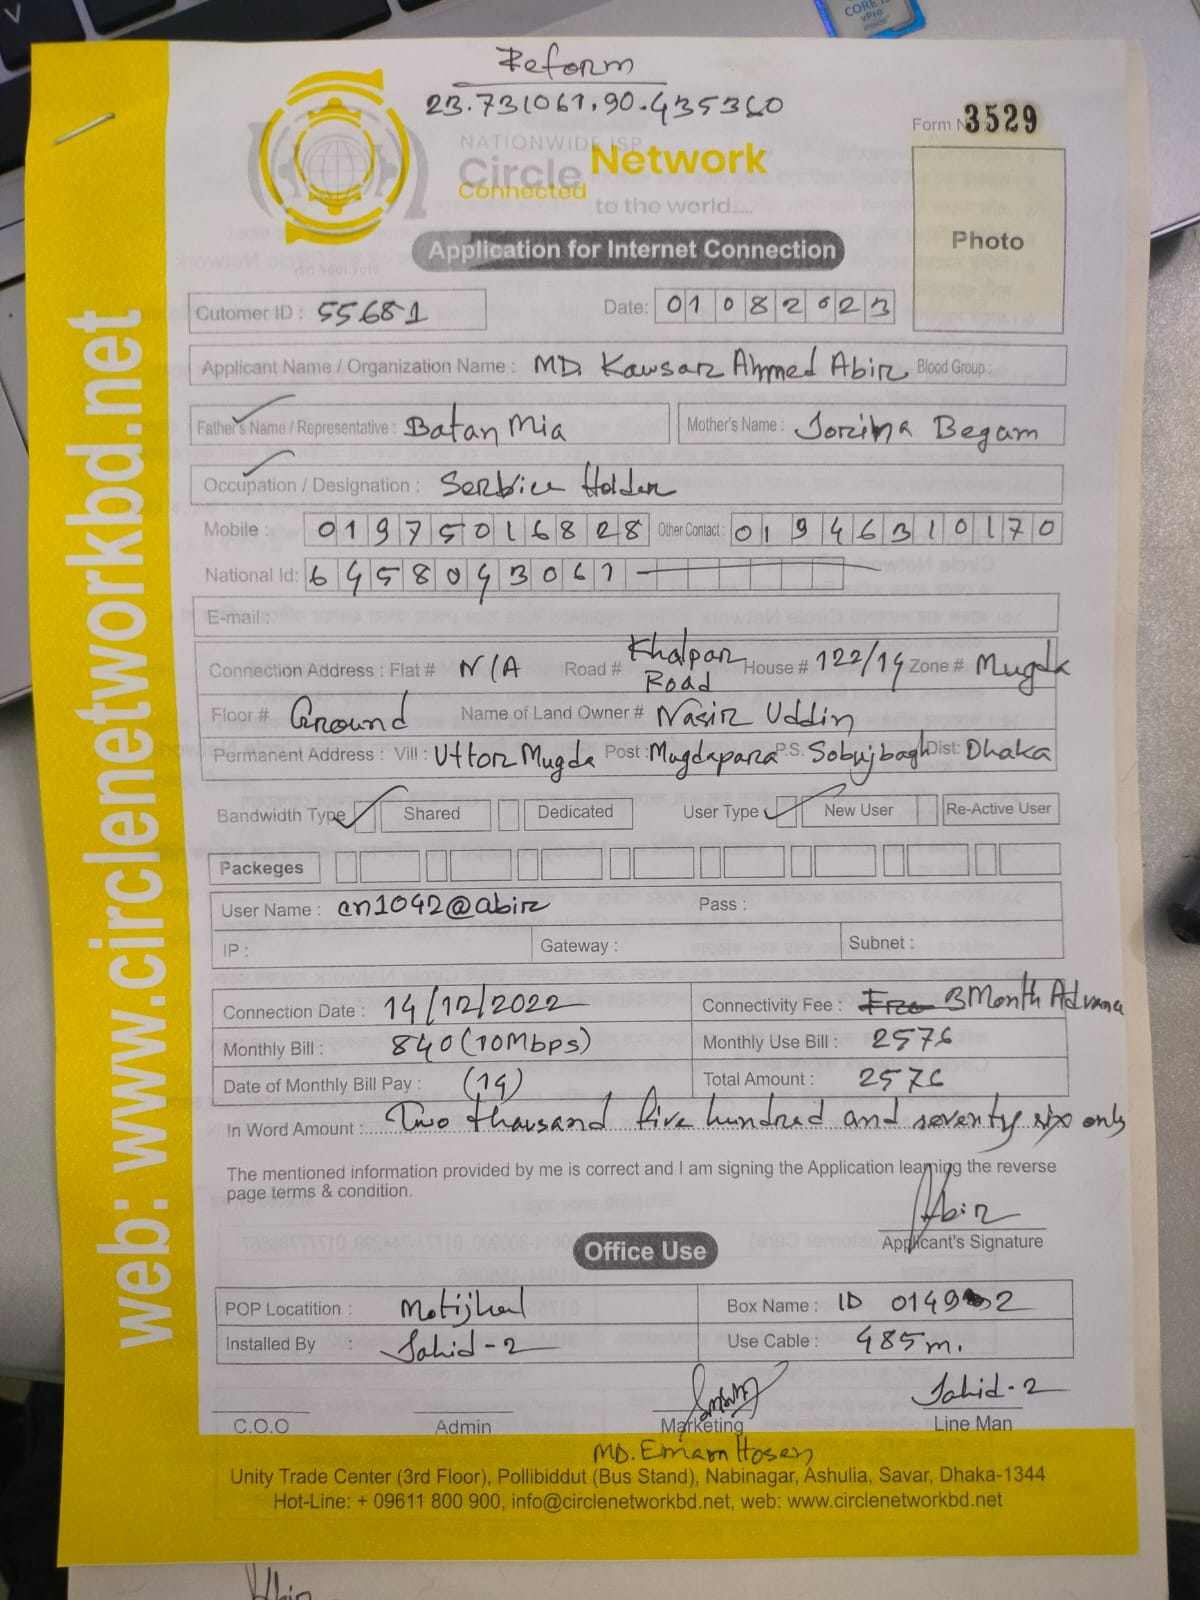 CORE i5
vPro
inside
Reform
23.731061,90.435360
Form No: 3529
NATIONWIDE ISP
Circle Network
Connected to the world.....
Photo
Application for Internet Connection
ISO 9001:2015
Cutomer ID : 55681 Date: 01082023
Applicant Name / Organization Name : MD. Kawsar Ahmed Abir Blood Group :
Father's Name / Representative : Batan Mia Mother's Name : Jorina Begam
Occupation / Designation : Serbice Holder
Mobile : 01975016828 Other Contact : 01946310170
National Id: 6458043061
E-mail :
Connection Address : Flat # N/A Road # Khalpar Road House # 122/14 Zone # Mugda
Floor # Ground Name of Land Owner # Nasir Uddin
Permanent Address : Vill : Uttor Mugda Post : Mugdapara P.S. Sobujbagh Dist: Dhaka
Bandwidth Type Shared Dedicated User Type New User Re-Active User
Packeges
User Name : cn1042@abir Pass :
IP : Gateway : Subnet :
Connection Date : 14/12/2022 Connectivity Fee : Free 3 Month Advance
Monthly Bill : 840 (10Mbps) Monthly Use Bill : 2576
Date of Monthly Bill Pay : (14) Total Amount : 2576
In Word Amount : Two thausand five hundred and seventy six only
The mentioned information provided by me is correct and I am signing the Application learning the reverse
page terms & condition.
Abir
Applicant's Signature
Office Use
POP Locatition : Motijheel Box Name : ID 0149 2
Installed By : Jahid-2 Use Cable : 485m.
Jahid-2
C.O.O Admin Marketing Line Man
MD. Emam Hosen
Unity Trade Center (3rd Floor), Pollibiddut (Bus Stand), Nabinagar, Ashulia, Savar, Dhaka-1344
Hot-Line: + 09611 800 900, info@circlenetworkbd.net, web: www.circlenetworkbd.net
web: www.circlenetworkbd.net
Abir